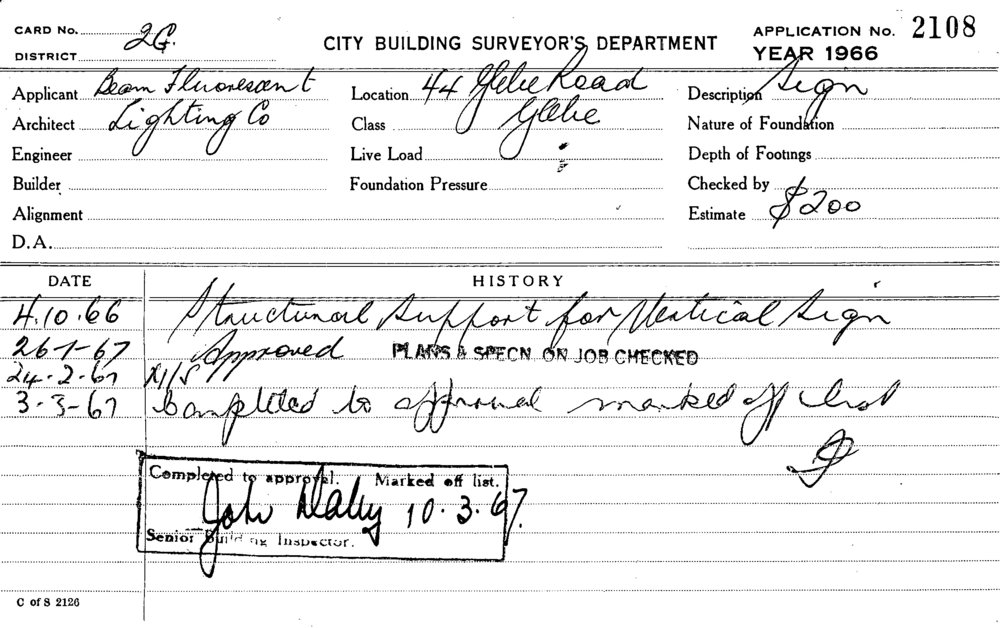 CARD No. 2G. CITY BUILDING SURVEYOR'S DEPARTMENT APPLICATION No. 2108
DISTRICT YEAR 1966
Applicant Beam Fluorescent Location 44 Glebe Road Description Sign
Architect Lighting Co Class Glebe Nature of Foundation
Engineer Live Load Depth of Footings
Builder Foundation Pressure Checked by
Alignment Estimate $200
D.A.
DATE HISTORY
4.10.66 Structural Support for Vertical Sign
26-1-67 Approved PLANS & SPECN. ON JOB CHECKED
24-2-67
3-3-67 Completed to approval marked off list
Completed to approval. Marked off list.
John Daly 10.3.67.
Senior Building Inspector.
C of S 2126